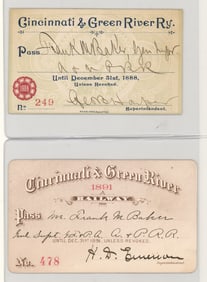 Cincinnati & Green River Ry.
Pass Frank M Baker Gen Agt
Until December 31st, 1888,
Unless Revoked.
No 249
Geo B Harper
Superintendent.
Cincinnati & Green River
1891
RAILWAY
Pass Mr. Frank M. Baker
Gnl Supt. A & P. R. R.
UNTIL DEC. 31st 1891, UNLESS REVOKED.
No. 478
H. D. Emerson